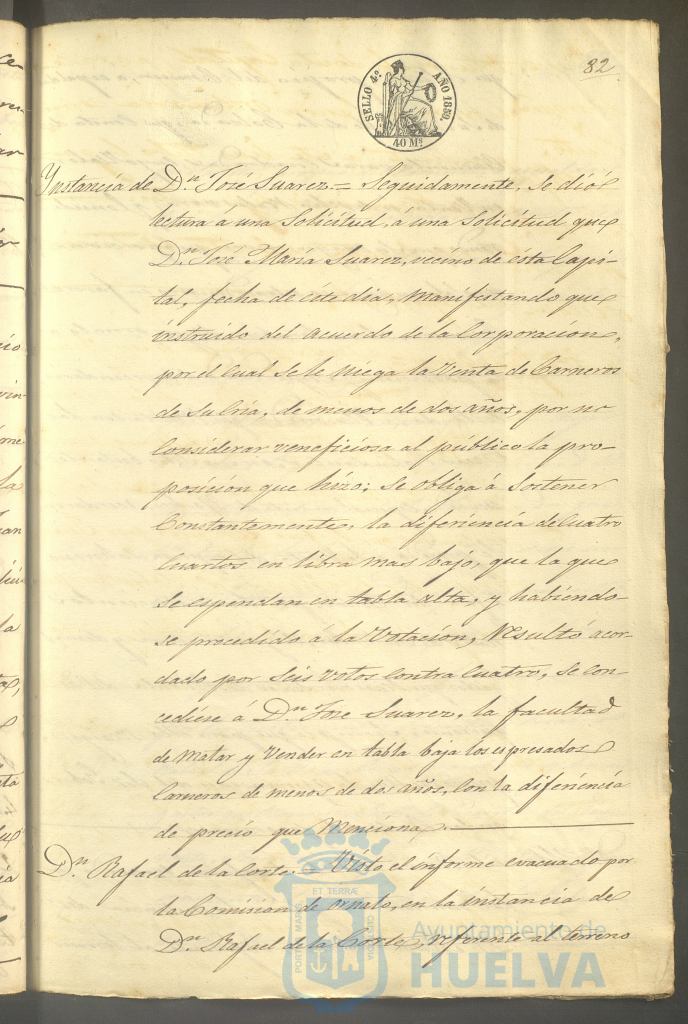 82
SELLO 4º AÑO 1859
40 Ms
Ynstancia de Dn José Suarez = Seguidamente, se dió
lectura á una Solicitud, á una Solicitud que
Dn José María Suarez, vecino de ésta Capi-
tal, fecha de éste dia, manifestando que
instruido del acuerdo de la Corporacion,
por el cual se le niega la Venta de Carneros
de su cria, de menos de dos años, por no
considerar veneficiosa al público la pro-
posicion que hizo; se obliga á Sostener
Constantemente, la diferiencia de cuatro
Cuartos en libra mas bajo, que la que
se espendan en tabla alta, y habiendo-
se procedido á la Votacion, resultó acor-
dado por Seis votos contra Cuatro, se con-
cediese á Dn Jose Suarez, la facultad
de Matar y Vender en tabla baja los espresados
Carneros de menos de dos años, con la diferiencia
de precio que Menciona.
Dn Rafael de la Corte. = Visto el informe evacuado por
la Comision de ornato, en la instancia de
Dn Rafael de la Corte, referente al terreno
PORTUS MARIS ET TERRÆ CUSTODIA
Ayuntamiento de
HUELVA